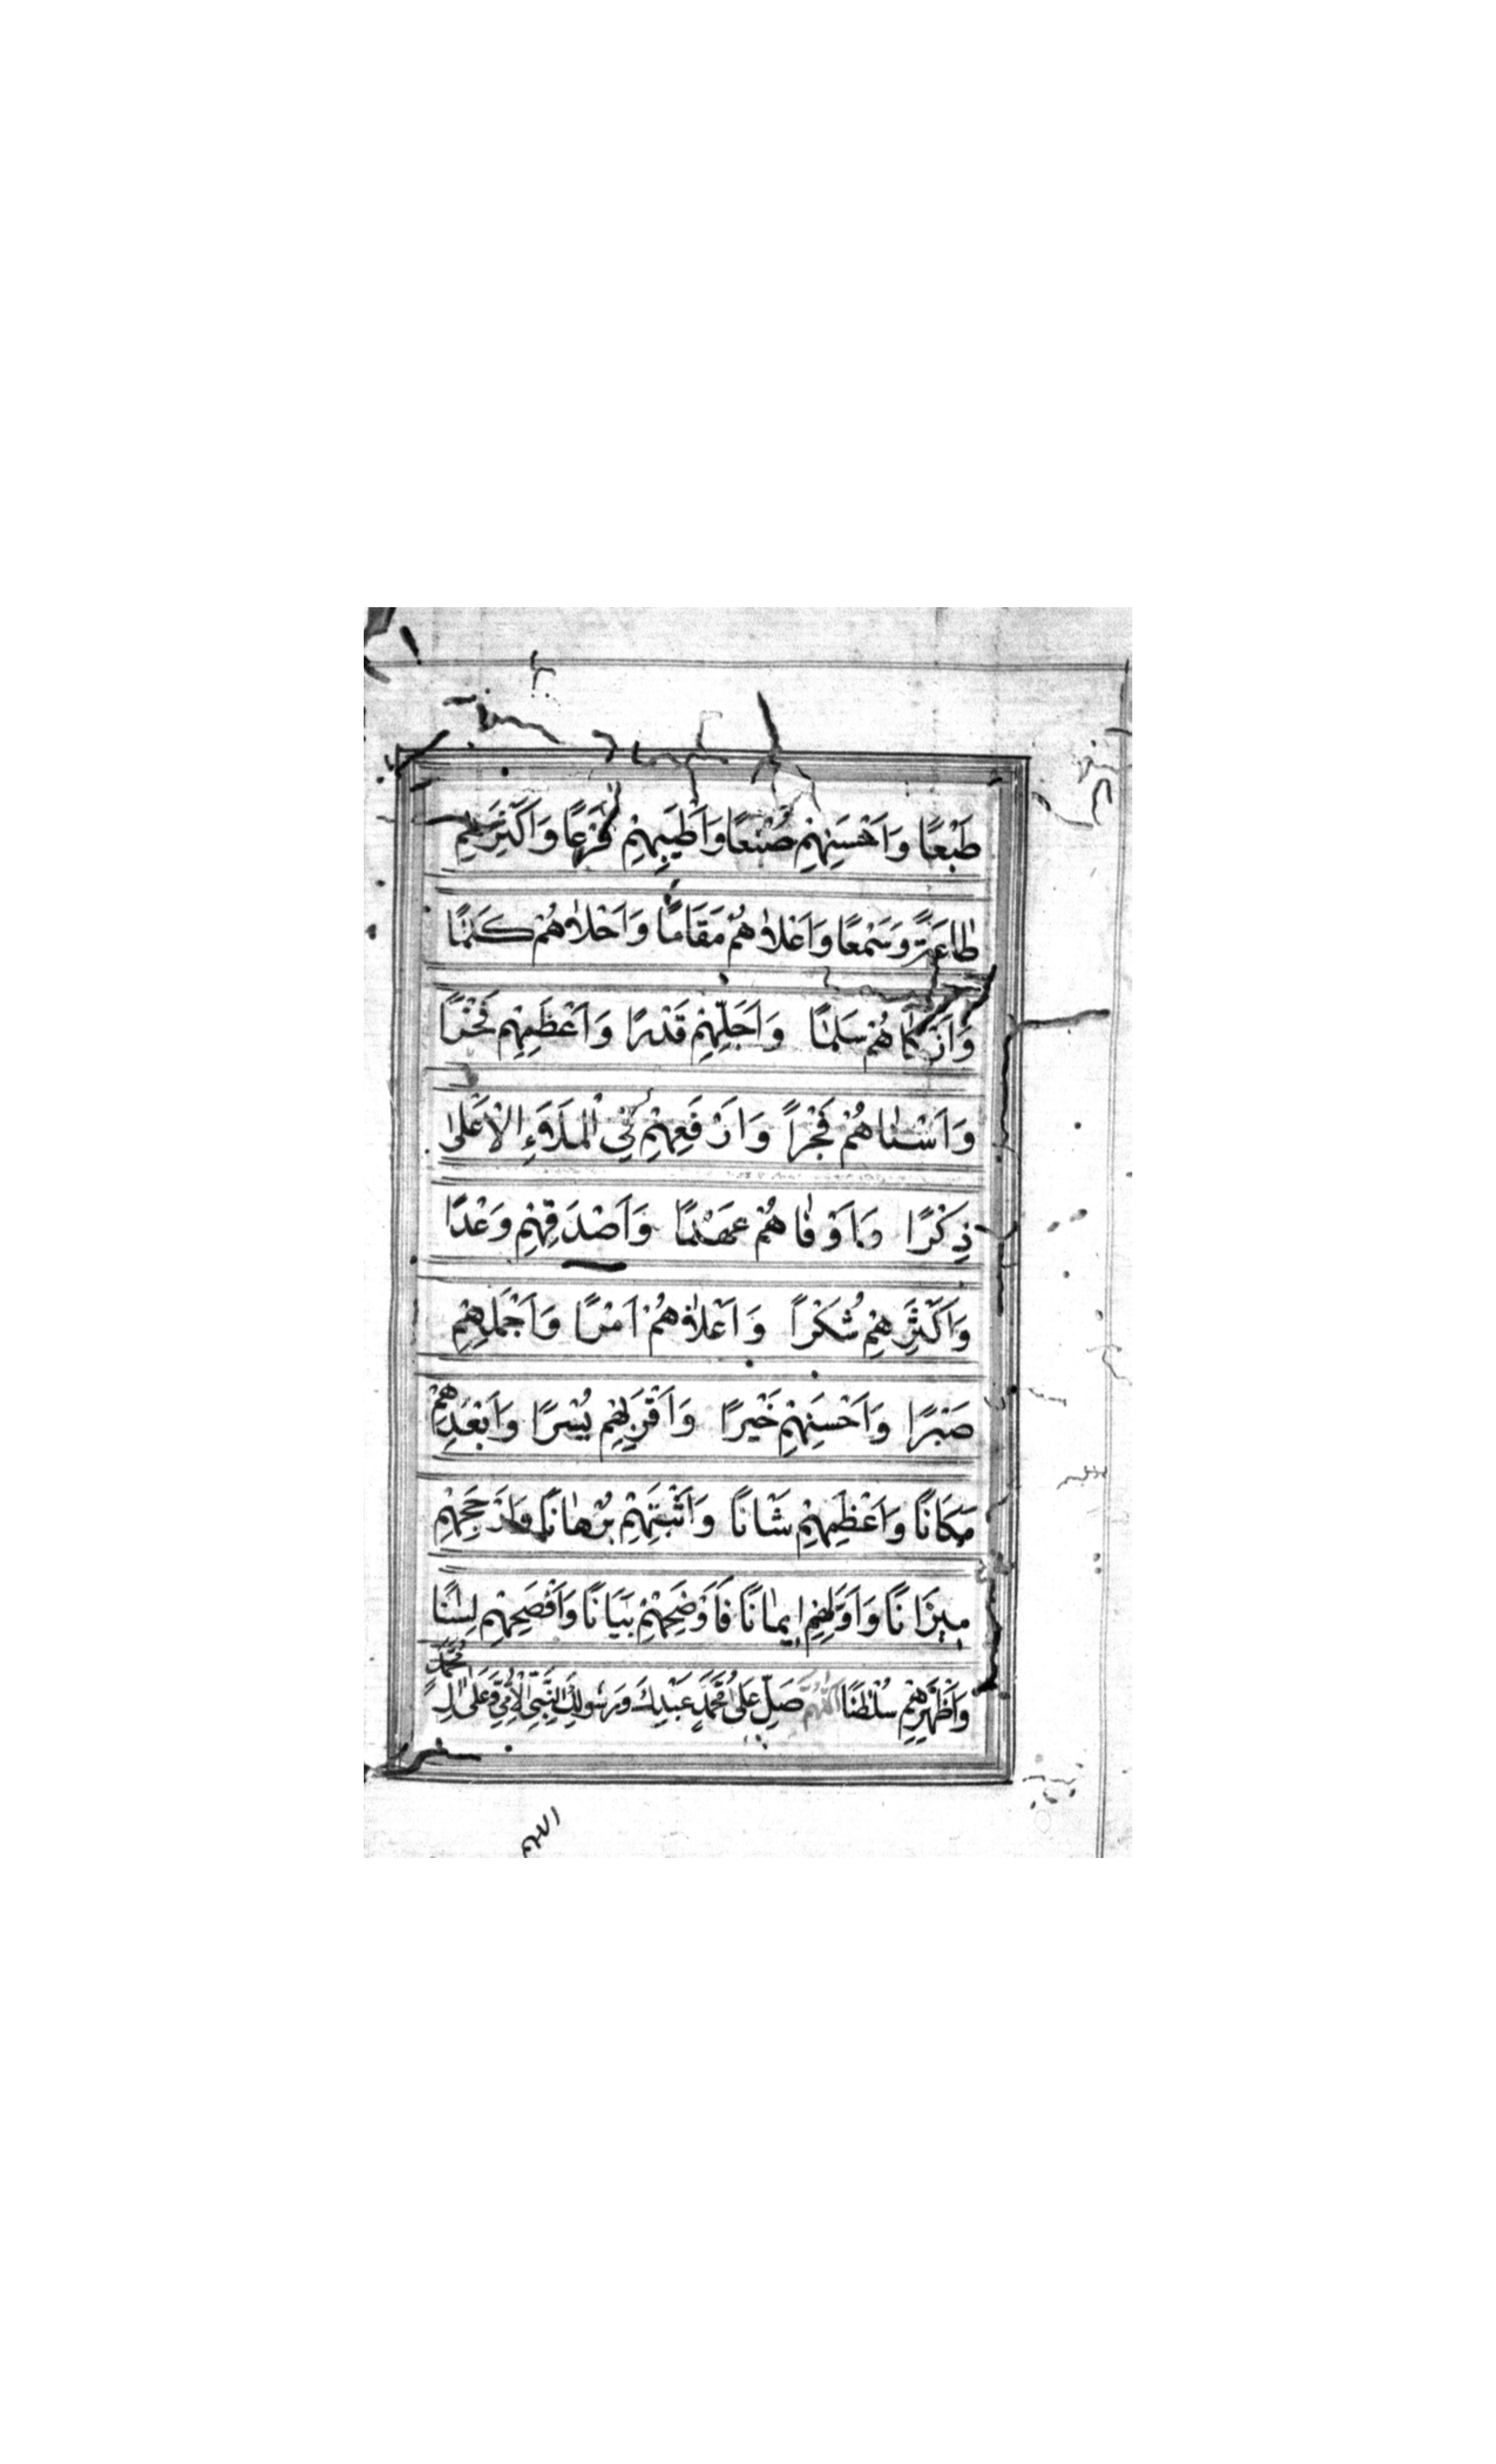 طَبْعًا وَاَحْسَنِهِمْ صُنْعًا وَاَطْيَبِهِمْ فَرْعًا وَاَكْثَرِهِمْ
طَاعَةً وَسَمْعًا وَاَعْلَاهُمْ مَقَامًا وَاَحْلَاهُمْ كَلَامًا
وَاَزْكَاهُمْ سَلَامًا وَاَجَلِّهِمْ قَدْرًا وَاَعْظَمِهِمْ فَخْرًا
وَاَسْنَاهُمْ فَجْرًا وَاَرْفَعِهِمْ فِي الْمَلَاءِ الْاَعْلٰى
ذِكْرًا وَاَوْفَاهُمْ عَهْدًا وَاَصْدَقِهِمْ وَعْدًا
وَاَكْثَرِهِمْ شُكْرًا وَاَعْلَاهُمْ اَمْرًا وَاَجْمَلِهِمْ
صَبْرًا وَاَحْسَنِهِمْ خَيْرًا وَاَقْرَبِهِمْ يُسْرًا وَاَبْعَدِهِمْ
مَكَانًا وَاَعْظَمِهِمْ شَانًا وَاَثْبَتِهِمْ بُرْهَانًا وَاَرْجَحِهِمْ
مِيزَانًا وَاَوَّلِهِمْ اِيمَانًا فَاَوْضَحِهِمْ بَيَانًا وَاَفْصَحِهِمْ لِسَانًا
وَاَظْهَرِهِمْ سُلْطٰنًا اَللّٰهُمَّ صَلِّ عَلٰى مُحَمَّدٍ عَبْدِكَ وَرَسُولِكَ النَّبِيِّ الْاُمِّيِّ وَعَلٰى اٰلِ مُحَمَّدٍ
اللهم